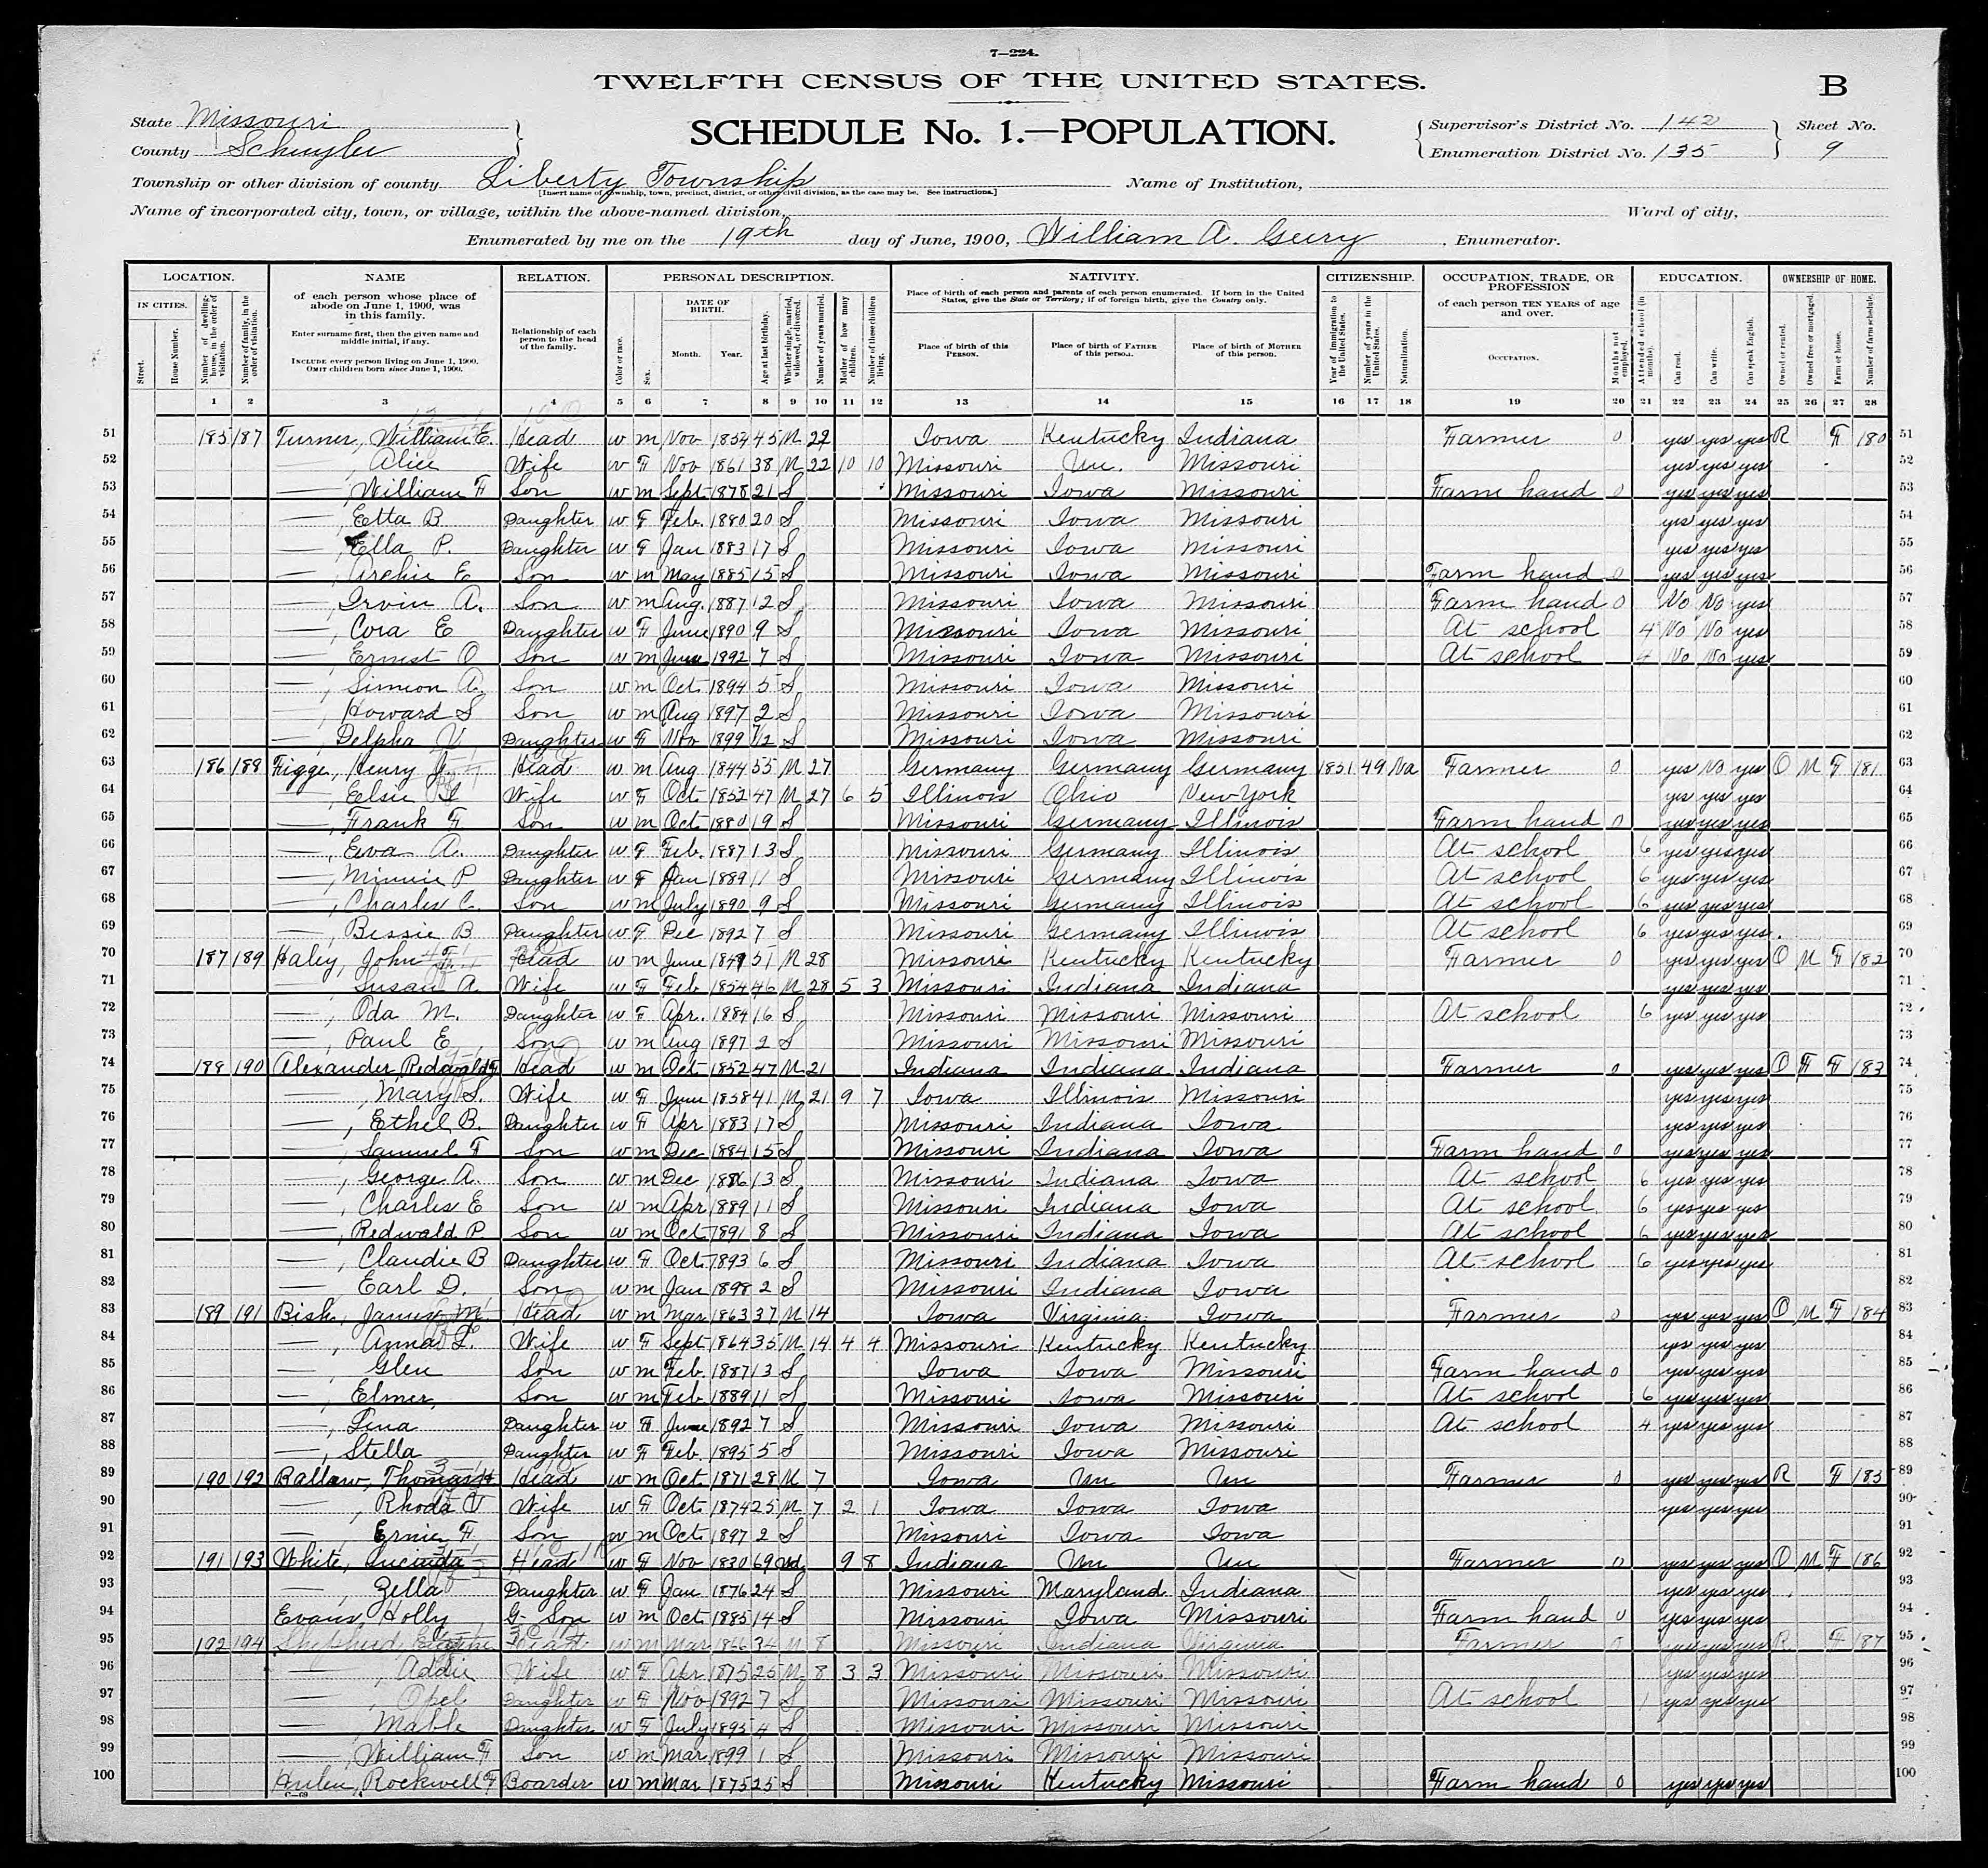 7—224.
TWELFTH CENSUS OF THE UNITED STATES.
B
State Missouri
County Schuyler
SCHEDULE No. 1.—POPULATION.
Supervisor's District No. 142
Enumeration District No. 135
Sheet No. 9
Township or other division of county Liberty Township
[Insert name of township, town, precinct, district, or other civil division, as the case may be. See instructions.]
Name of Institution,
Name of incorporated city, town, or village, within the above-named division,
Ward of city,
Enumerated by me on the 19th day of June, 1900, William A. Geery, Enumerator.
LOCATION. NAME RELATION. PERSONAL DESCRIPTION. NATIVITY. CITIZENSHIP. OCCUPATION, TRADE, OR PROFESSION EDUCATION. OWNERSHIP OF HOME.
IN CITIES. Street. House Number. Number of dwelling-house, in the order of visitation. Number of family, in the order of visitation.
of each person whose place of abode on June 1, 1900, was in this family.
Enter surname first, then the given name and middle initial, if any.
INCLUDE every person living on June 1, 1900. OMIT children born since June 1, 1900.
Relationship of each person to the head of the family.
Color or race. Sex. DATE OF BIRTH. Month. Year. Age at last birthday. Whether single, married, widowed, or divorced. Number of years married. Mother of how many children. Number of these children living.
Place of birth of each person and parents of each person enumerated. If born in the United States, give the State or Territory; if of foreign birth, give the Country only.
Place of birth of this PERSON. Place of birth of FATHER of this person. Place of birth of MOTHER of this person.
Year of immigration to the United States. Number of years in the United States. Naturalization.
of each person TEN YEARS of age and over.
OCCUPATION. Months not employed.
Attended school (in months). Can read. Can write. Can speak English.
Owned or rented. Owned free or mortgaged. Farm or house. Number of farm schedule.
1 2 3 4 5 6 7 8 9 10 11 12 13 14 15 16 17 18 19 20 21 22 23 24 25 26 27 28
51 185 187 Turner, William E. Head W M Nov 1854 45 M 22 Iowa Kentucky Indiana Farmer 0 yes yes yes R F 180 51
52 —, Alice Wife W F Nov 1861 38 M 22 10 10 Missouri Un. Missouri yes yes yes 52
53 —, William F Son W M Sept 1878 21 S Missouri Iowa Missouri Farm hand 0 yes yes yes 53
54 —, Etta B Daughter W F Feb. 1880 20 S Missouri Iowa Missouri yes yes yes 54
55 —, Ella P. Daughter W F Jan 1883 17 S Missouri Iowa Missouri yes yes yes 55
56 —, Archie E Son W M May 1885 15 S Missouri Iowa Missouri Farm hand 0 yes yes yes 56
57 —, Irvin A. Son W M Aug. 1887 12 S Missouri Iowa Missouri Farm hand 0 No No yes 57
58 —, Cora E Daughter W F June 1890 9 S Missouri Iowa Missouri At school 4 No No yes 58
59 —, Ernest O Son W M June 1892 7 S Missouri Iowa Missouri At school 4 No No yes 59
60 —, Simeon A. Son W M Oct. 1894 5 S Missouri Iowa Missouri 60
61 —, Howard S Son W M Aug 1897 2 S Missouri Iowa Missouri 61
62 —, Delpha V Daughter W F Nov 1899 7/12 S Missouri Iowa Missouri 62
63 186 188 Figge, Henry J. Head W M Aug 1844 55 M 27 Germany Germany Germany 1851 49 Na Farmer 0 yes No yes O M F 181 63
64 —, Elsie Wife W F Oct 1852 47 M 27 6 5 Illinois Ohio New York yes yes yes 64
65 —, Frank F. Son W M Oct 1880 19 S Missouri Germany Illinois Farm hand 0 yes yes yes 65
66 —, Eva A. Daughter W F Feb. 1887 13 S Missouri Germany Illinois At school 6 yes yes yes 66
67 —, Minnie P Daughter W F Jan 1889 11 S Missouri Germany Illinois At school 6 yes yes yes 67
68 —, Charles C. Son W M July 1890 9 S Missouri Germany Illinois At school 6 yes yes yes 68
69 —, Bessie B Daughter W F Dec 1892 7 S Missouri Germany Illinois At school 6 yes yes yes 69
70 187 189 Haley, John Head W M June 1849 51 M 28 Missouri Kentucky Kentucky Farmer 0 yes yes yes O M F 182 70
71 —, Susan A. Wife W F Feb 1854 46 M 28 5 3 Missouri Indiana Indiana yes yes yes 71
72 —, Oda M. Daughter W F Apr. 1884 16 S Missouri Missouri Missouri At school 6 yes yes yes 72
73 —, Paul E Son W M Aug 1897 2 S Missouri Missouri Missouri 73
74 188 190 Alexander, Redwald F Head W M Oct 1852 47 M 21 Indiana Indiana Indiana Farmer 0 yes yes yes O F F 183 74
75 —, Mary S. Wife W F June 1858 41 M 21 9 7 Iowa Illinois Missouri yes yes yes 75
76 —, Ethel B. Daughter W F Apr 1883 17 S Missouri Indiana Iowa yes yes yes 76
77 —, Samuel F Son W M Dec 1884 15 S Missouri Indiana Iowa Farm hand 0 yes yes yes 77
78 —, George A. Son W M Dec 1886 13 S Missouri Indiana Iowa At school 6 yes yes yes 78
79 —, Charles E Son W M Apr 1889 11 S Missouri Indiana Iowa At school 6 yes yes yes 79
80 —, Redwald P Son W M Oct 1891 8 S Missouri Indiana Iowa At school 6 yes yes yes 80
81 —, Claudie B Daughter W F Oct 1893 6 S Missouri Indiana Iowa At school 6 yes yes yes 81
82 —, Earl D. Son W M Jan 1898 2 S Missouri Indiana Iowa 82
83 189 191 Bish, James M. Head W M Mar 1863 37 M 14 Iowa Virginia Iowa Farmer 0 yes yes yes O M F 184 83
84 —, Anna L. Wife W F Sept 1864 35 M 14 4 4 Missouri Kentucky Kentucky yes yes yes 84
85 —, Glen Son W M Feb. 1887 13 S Iowa Iowa Missouri Farm hand 0 yes yes yes 85
86 —, Elmer, Son W M Feb 1889 11 S Missouri Iowa Missouri At school 6 yes yes yes 86
87 —, Lina Daughter W F June 1892 7 S Missouri Iowa Missouri At school 4 yes yes yes 87
88 —, Stella Daughter W F Feb. 1895 5 S Missouri Iowa Missouri 88
89 190 192 Ballaw, Thomas H Head W M Oct 1871 28 M 7 Iowa Un Un Farmer 0 yes yes yes R F 185 89
90 —, Rhoda V Wife W F Oct. 1874 25 M 7 2 1 Iowa Iowa Iowa yes yes yes 90
91 —, Ernie F. Son W M Oct 1897 2 S Missouri Iowa Iowa 91
92 191 193 White, Lucinda Head W F Nov 1830 69 Wd 9 8 Indiana Un Un Farmer 0 yes yes yes O M F 186 92
93 —, Zella Daughter W F Jan 1876 24 S Missouri Maryland Indiana yes yes yes 93
94 Evans, Holly G-Son W M Oct. 1885 14 S Missouri Iowa Missouri Farm hand 0 yes yes yes 94
95 192 194 Shepherd, Head W M Mar 1866 34 M 8 Missouri Indiana Virginia Farmer 0 yes yes yes R F 187 95
96 —, Addie Wife W F Apr 1875 25 M 8 3 3 Missouri Missouri Missouri yes yes yes 96
97 —, Opel Daughter W F Nov 1892 7 S Missouri Missouri Missouri At school 1 yes yes yes 97
98 —, Mable Daughter W F July 1895 4 S Missouri Missouri Missouri 98
99 —, William F Son W M Mar 1899 1 S Missouri Missouri Missouri 99
100 Hulen, Rockwell F Boarder W M Mar 1875 25 S Missouri Kentucky Missouri Farm hand 0 yes yes yes 100